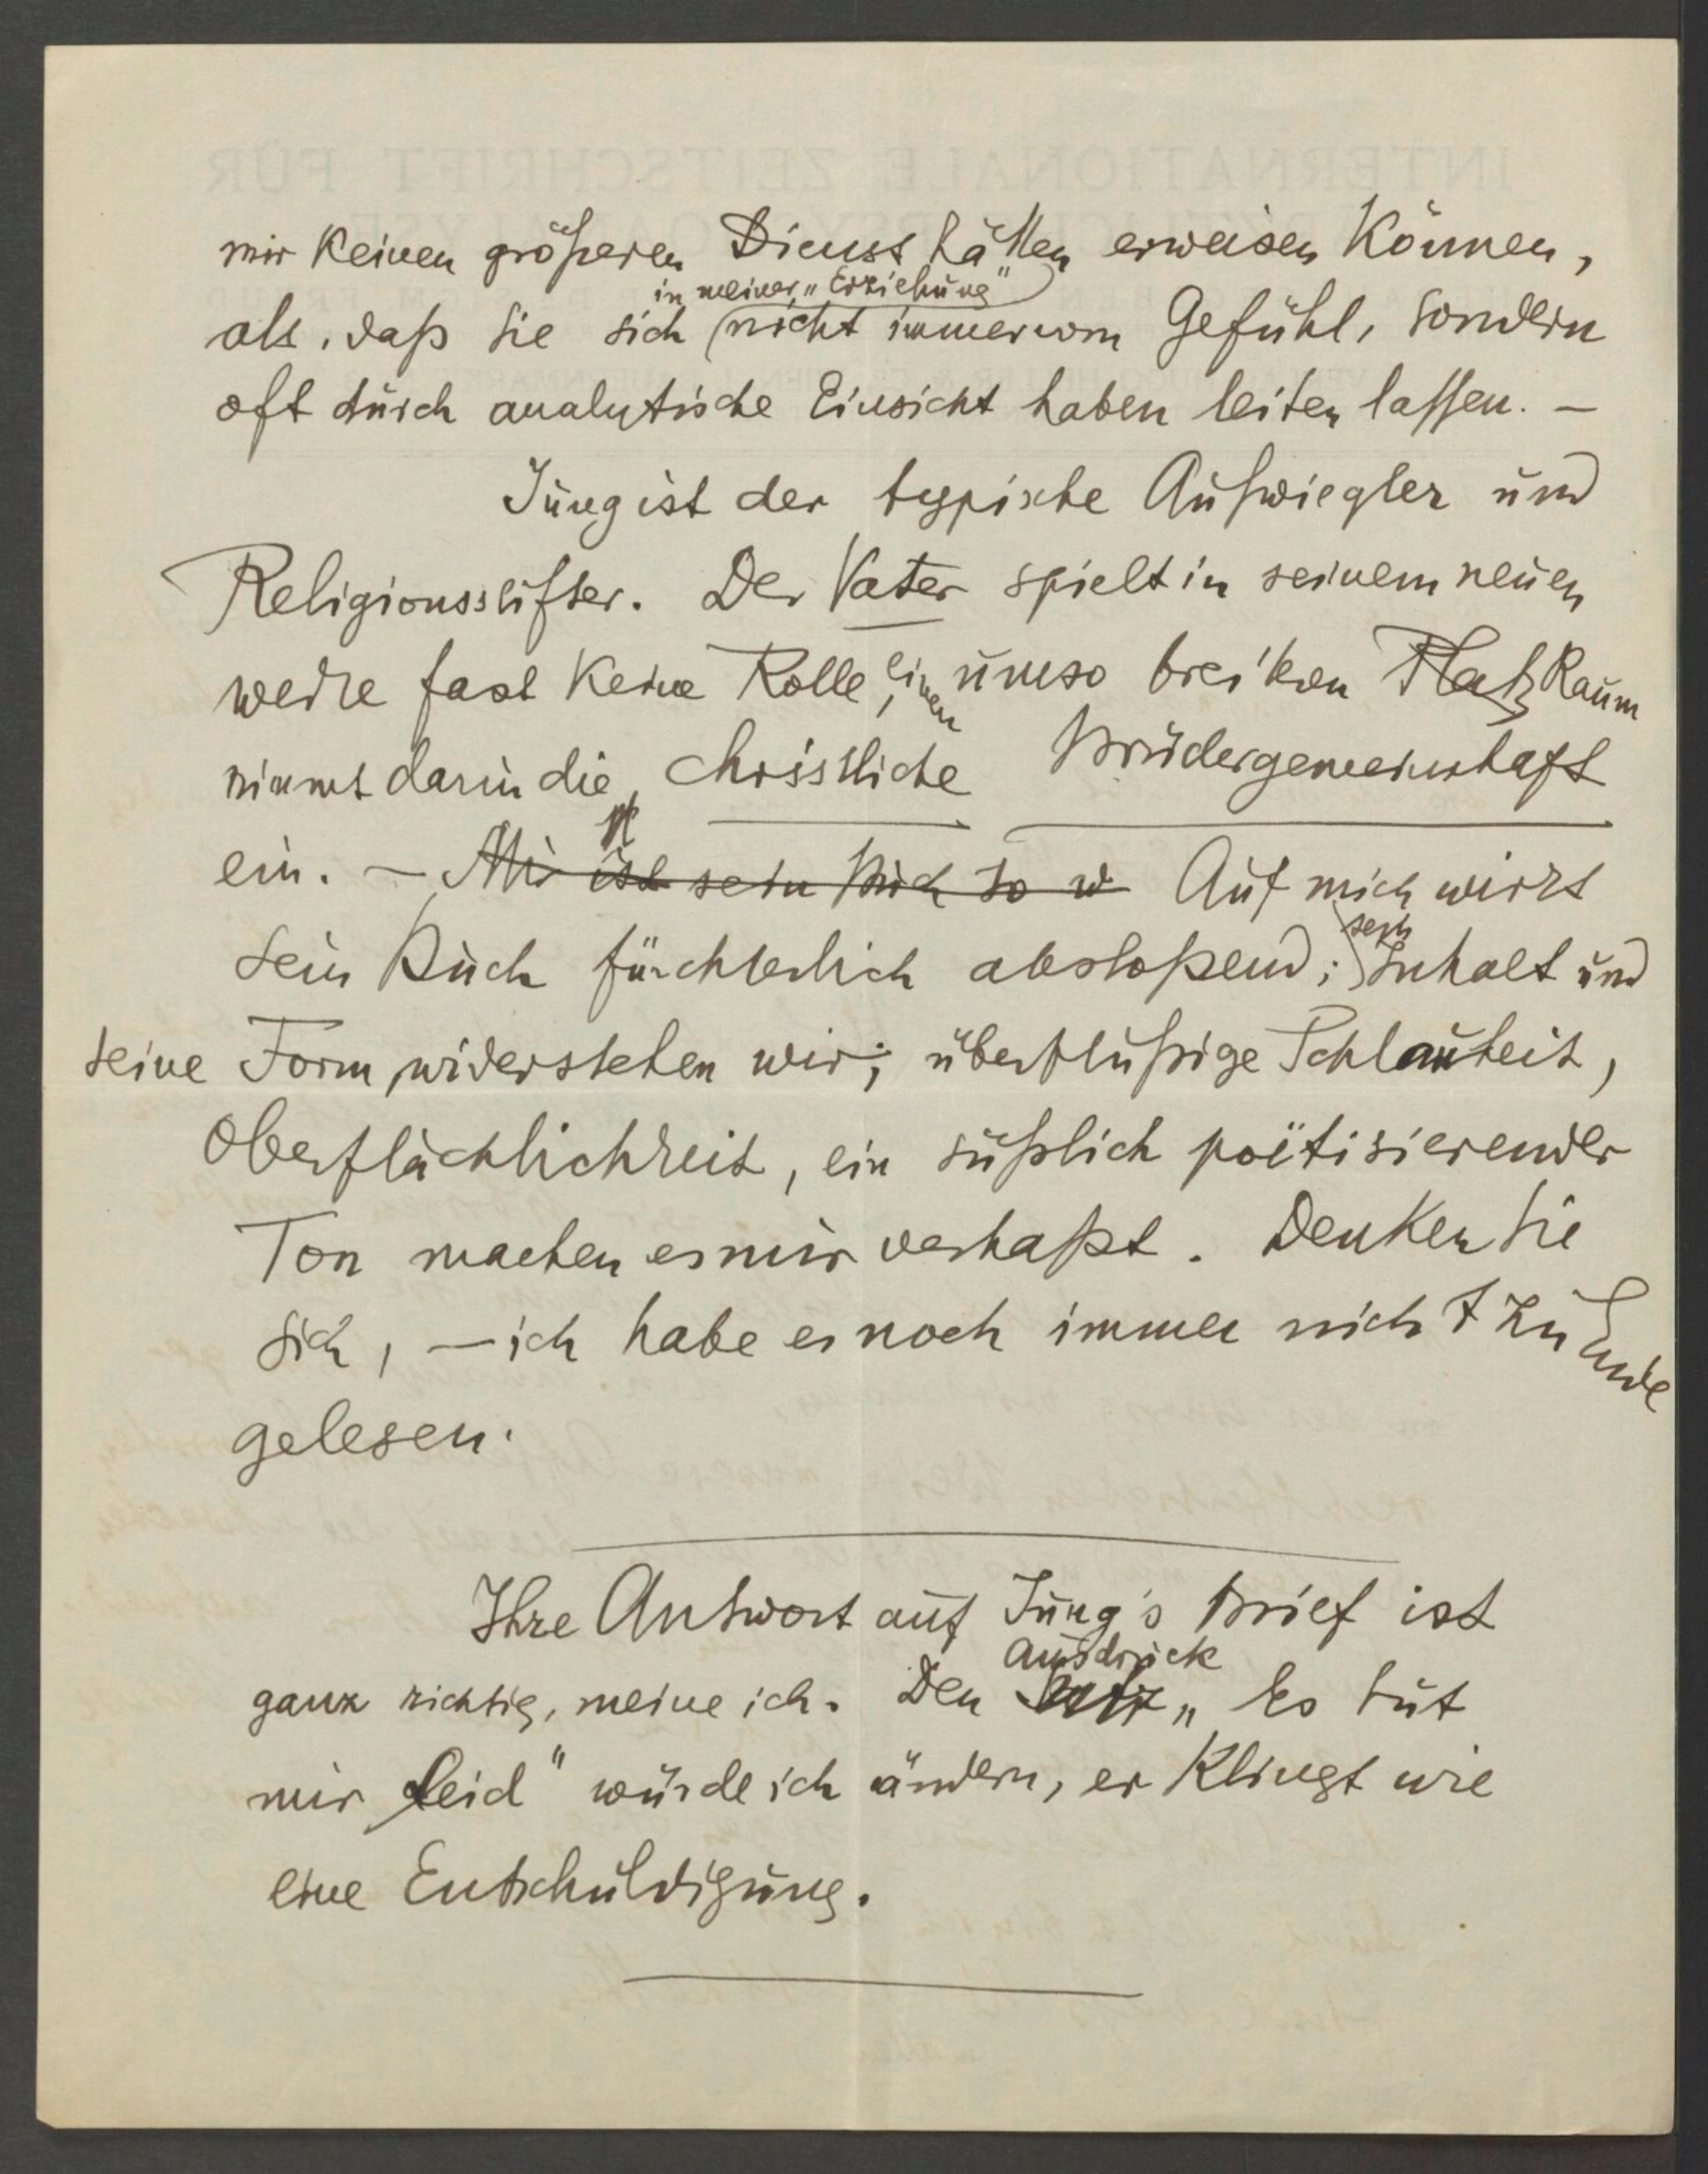 mir keinen größeren Dienst hätten erweisen können,
in meiner „Erziehung"
als, daß Sie sich nicht immer vom Gefühl, sondern
oft durch analytische Einsicht haben leiten lassen. –
Jung ist der typische Aufwiegler und
Religionsstifter. Der Vater spielt in seinem neuen
Werke fast keine Rolle, einen umso breiteren Platz Raum
nimmt darin die christliche Brüdergemeinschaft
ein. – Mir ist sein Buch so w Auf mich wirkt
sein Buch fürchterlich abstoßend; sein Inhalt und
seine Form widerstehen mir; überflüßige Schlauheit,
Oberflächlichkeit, ein süßlich poëtisierender
Ton machen es mir verhaßt. Denken Sie
sich, – ich habe es noch immer nicht zu Ende
gelesen.
Ihre Antwort auf Jung's Brief ist
Ausdruck
ganz richtig, meine ich. Den Satz „Es tut
mir leid" würde ich ändern, er klingt wie
eine Entschuldigung.